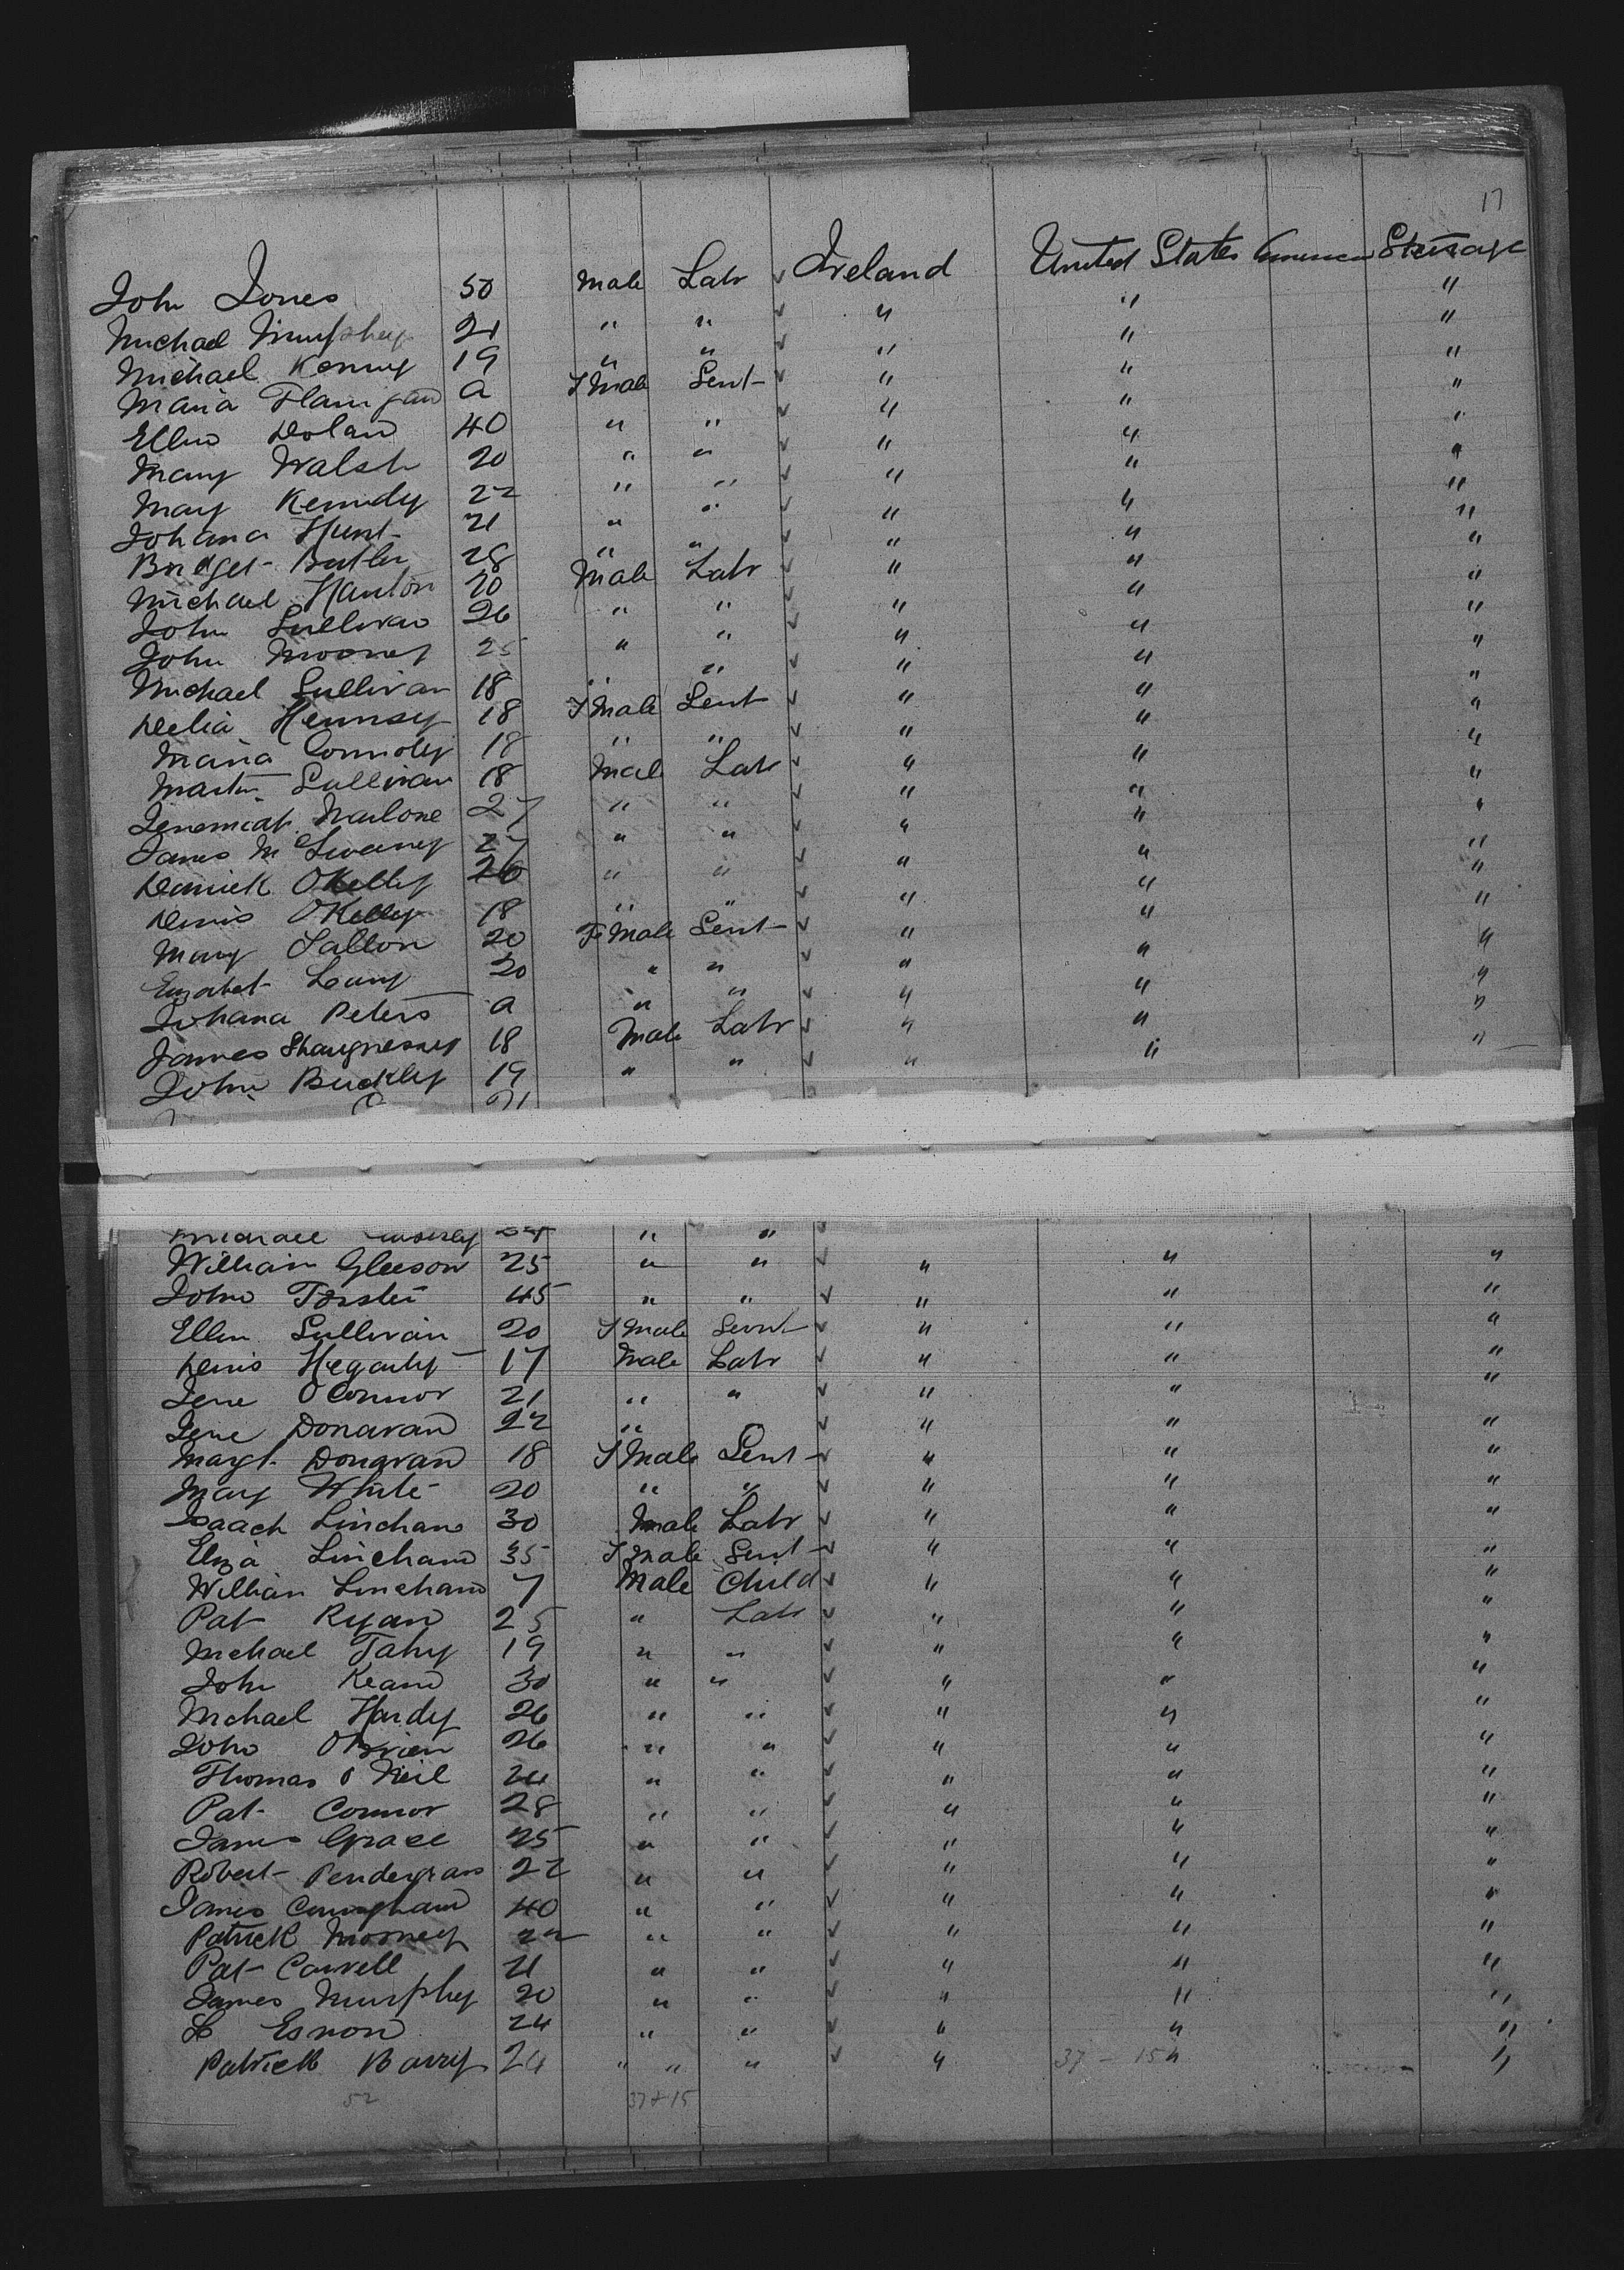 17
John Jones 50 Male Labr ✓ Ireland United States American Steerage
Michael Murphey 21 " " ✓ " " "
Michael Kenny 19 " " ✓ " " "
Maria Flanigan a F Male Sevt ✓ " " "
Ellen Dolan 40 " " ✓ " " "
Mary Walsh 20 " " ✓ " " "
Mary Kennedy 22 " " ✓ " " "
Johana Hunt 21 " " ✓ " " "
Bridget Butler 28 " " ✓ " " "
Michael Hanlon 20 Male Labr ✓ " " "
John Sullivan 26 " " ✓ " " "
John Mooney 25 " " ✓ " " "
Michael Sullivan 18 " " ✓ " " "
Delia Hennsey 18 F Male Sevt ✓ " " "
Maria Connoley 18 " " ✓ " " "
Martin Sullivan 18 Male Labr ✓ " " "
Jeremiah Malone 27 " " ✓ " " "
James McSweeney 27 " " ✓ " " "
Daniel OKelly 26 " " ✓ " " "
Denis OKelly 18 " " ✓ " " "
Mary Fallon 20 Fe Male Sevt ✓ " " "
Elizabet 20 " " ✓ " " "
Johana Peters a " " ✓ " " "
James Shaugnessey 18 Male Labr ✓ " " "
John Buckley 19 " " ✓ " " "
21
Michael " " ✓
William Gleeson 25 " " ✓ " " "
John Forster 45 " " ✓ " " "
Ellen Sullivan 20 F Male Servt ✓ " " "
Denis Hegarty 17 Male Labr ✓ " " "
Jere OConnor 21 " " ✓ " " "
Jere Donavan 22 " ✓ " " "
Margt Donavan 18 F Male Sevt ✓ " " "
Mary White 20 " " ✓ " " "
Isaach Linehan 30 Male Labr ✓ " " "
Eliza Linehan 35 F Male Sevt ✓ " " "
William Linehan 7 Male Child ✓ " " "
Pat Ryan 25 " Labr ✓ " " "
Michael Fahy 19 " " ✓ " " "
John Keane 30 " " ✓ " " "
Michael Hardy 26 " " ✓ " " "
John OBrien 26 " " ✓ " " "
Thomas O Neil 24 " " ✓ " " "
Pat Connor 28 " " ✓ " " "
James Grace 25 " " ✓ " " "
Robert Pendergrass 22 " " ✓ " " "
James Cuningham 40 " " ✓ " " "
Patrick Mooney 22 " " ✓ " " "
Pat Carvell 21 " " ✓ " " "
James Murphy 20 " " ✓ " " "
Esmond 24 " " ✓ " " "
Patrick Barry 24 " " " ✓ " 37 - 15 " "
52 37+15